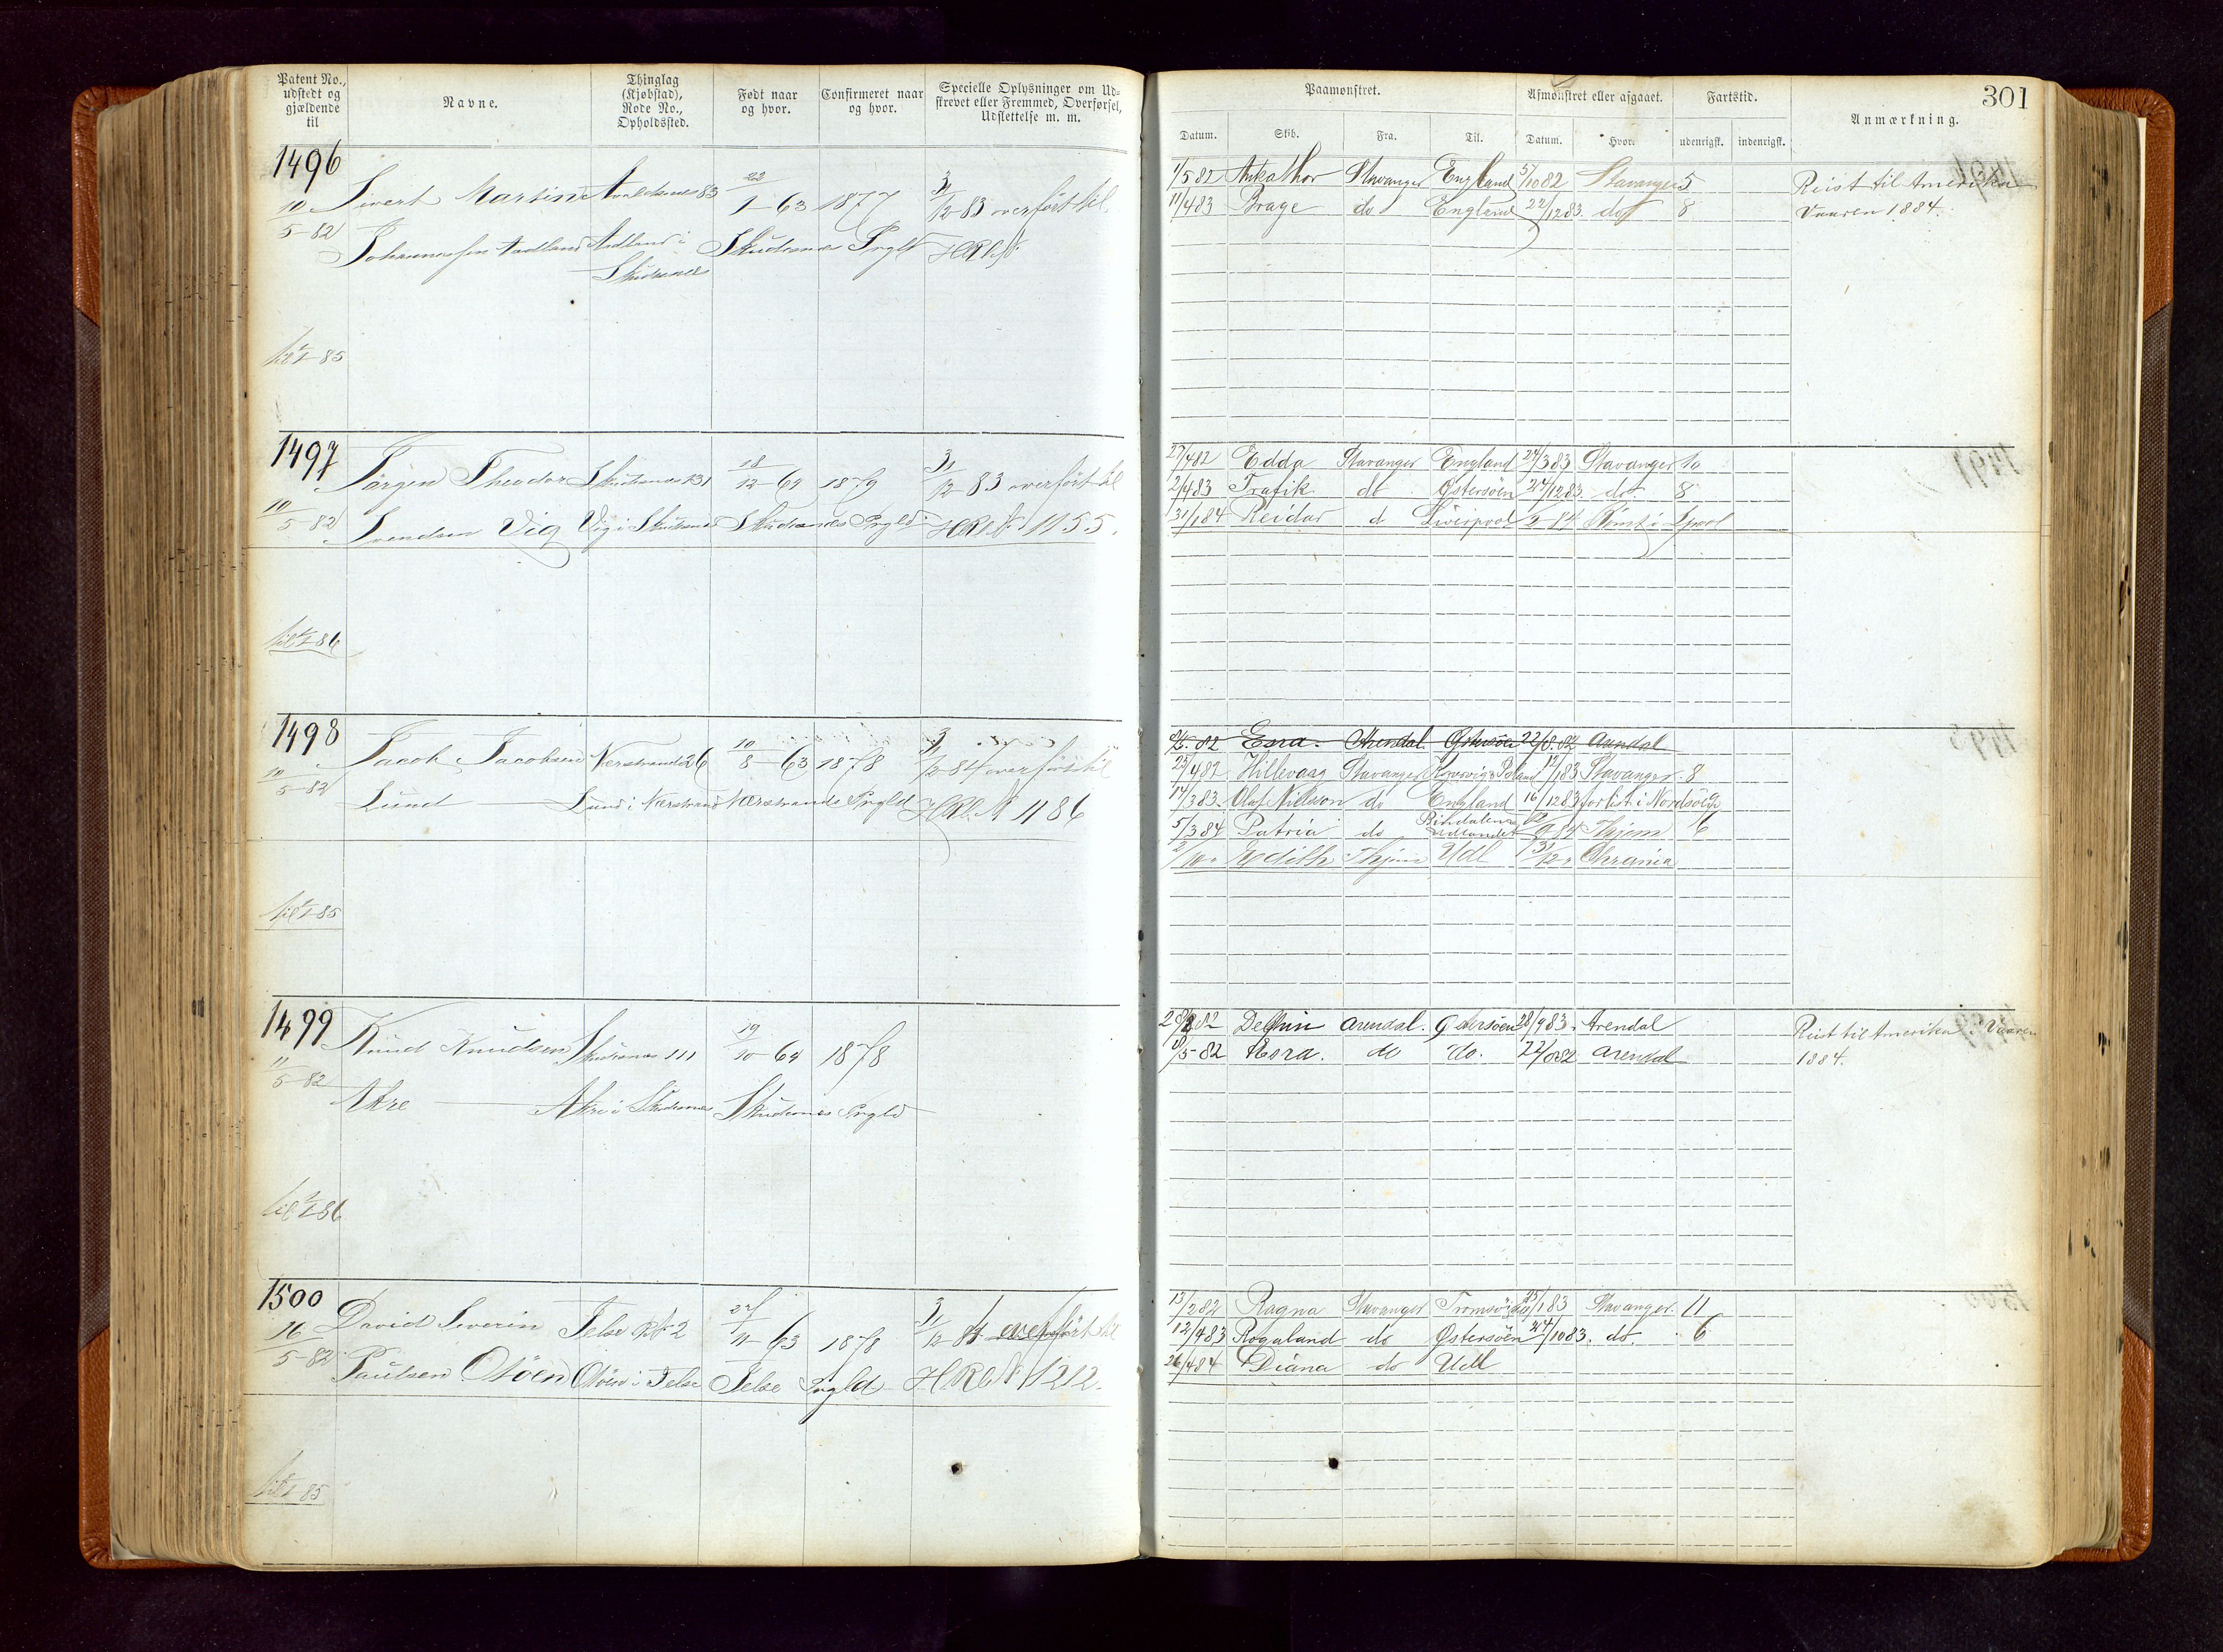 Patent No.,
udstedt og
gjældende
til
Navne.
Thinglag
(Kjøbstad),
Rode No.,
Opholdssted.
Født naar
og hvor.
Confirmeret naar
og hvor.
Specielle Oplysninger om Ud=
skrevet eller Fremmed, Overførsel,
Udslettelse m. m.
1496
10/5-82 Sivert Martin Avaldsnes 83 22/1-63 1877 31/12-83 overført til
Johannessen Aadland Aadland i Skudesnes Prgld HRL
Skudesnes
til 1/1-85
1497
10/5-82 Jørgen Theodor Skudesnes 131 18/12-64 1879 31/12-83 overført til
Svendsen Vig Vig i Skudesnes Skudesnes Prgld HRL № 1155.
til 1/1-86
1498
10/5-82 Jacob Jacobsen Nerstrand 26 10/8-63 1878 31/12-84 overført til
Lund Lund i Nærstrand Nærstrands Prgld HRL № 1186
til 1/1-85
1499
11/5-82 Knud Knudsen Skudesnes 111 19/10-64 1878
Akre Akre i Skudesnes Skudesnes Prgld
til 1/1-86
1500
16/5-82 David Severin Jelse № 2 27/11-63 1878 31/12-84 overført til
Paulsen Otöen Otöen i Jelse Jelse Prgld HRL № 1212.
til 1/1-85
301
Paamønstret.
Afmønstret eller afgaaet.
Fartstid.
Anmærkning.
Datum. Skib. Fra. Til. Datum. Hvor. udenrigsk. indenrigsk.
1/5 82 Ankathor Stavanger England 5/10 82 Stavanger 5 Reist til Amerika
11/4 83 Brage do England 22/12 83. do 8 Vaaren 1884.
27/4 82 Edda Stavanger England 24/3 83 Stavanger 10
2/4 83 Trafik do Østersøen 24/12 83. do 8
31/1 84 Reidar d Liverpool
82 Esra. Arendal. Østersøen 22/8. 82 Arendal
25/4 82 Hillevaag Stavanger 12/1 83 Stavanger. 8
14/3 83. Olaf Nielsson do England 16/12 83 forlist i Nordsøen
5/3 84 Patria do Udlandet 84 Hjem 6
2/10 " Edith Hjem Udl 31/12 " Chrania
82 Delphin Arendal. Østersøen 28/9 83. Arendal Reist til Amerika i Vaaren
/5-82 Esra. do do. 22/8 82 Arendal 1884.
13/2 82 Ragna Stavanger 25/1 83 Stavanger. 11
12/4 83 Rogaland do Østersøen 24/10 83. do. 6
26/4 84 Diana do Udl